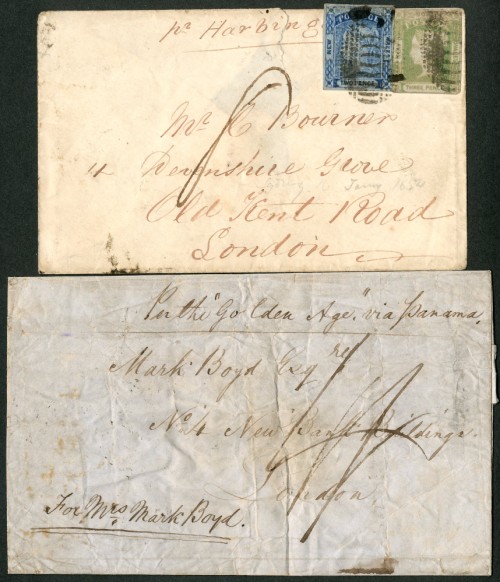 pr Harbing
POSTAGE
NEW
TWO PENCE
THREE PENCE
Mr C Bourner
4 Devonshire Grove
Old Kent Road
London
Per the "Golden Age." via Panama.
Mark Boyd Esqre
No 4 New Bank Buildings.
London.
For Mrs Mark Boyd.